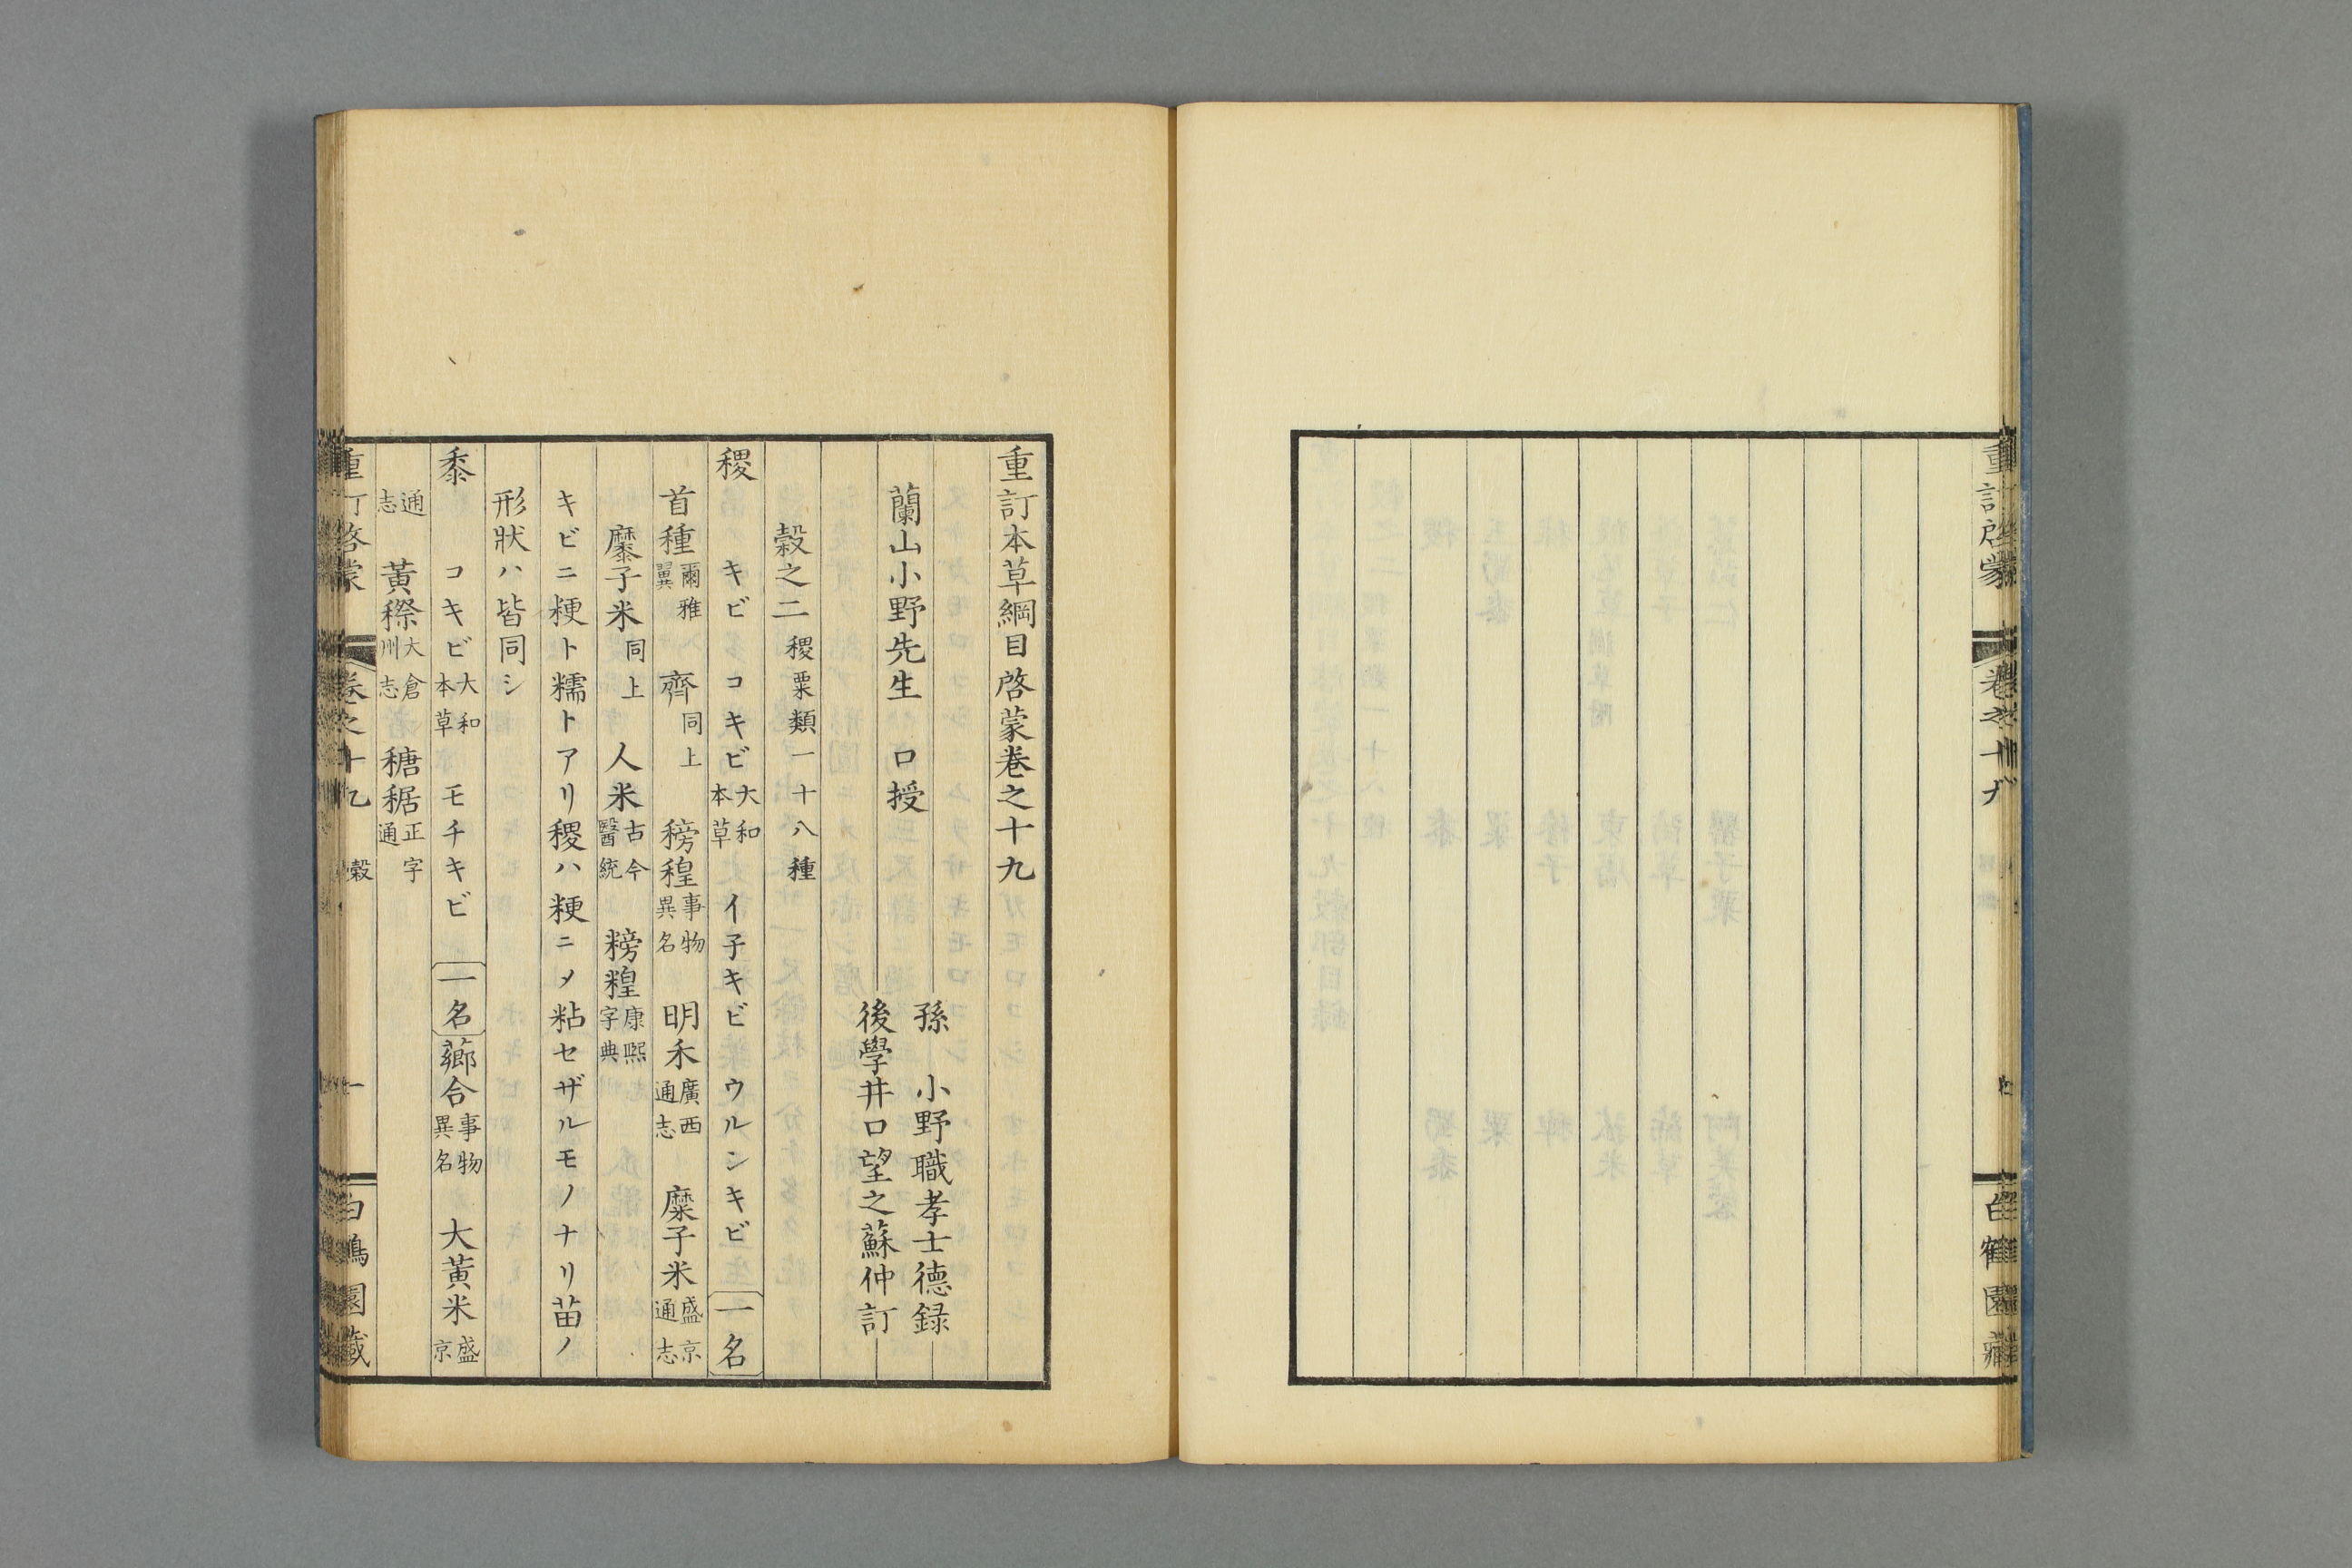 重訂本草綱目啓蒙巻之十九
蘭山小野先生 口授
孫 小野職孝士德録
後學井口望之蘇仲訂
穀之二 稷粟類一十八種
稷 キビ コキビ 大和本草 イ子キビ ウルシキビ 一名
首種 爾雅翼 齊 同上 䅭䅣 事物異名 明禾 廣西通志 糜子米 盛京通志
穈子米 同上 人米 古今醫統 䅭䅣 康熙字典
キビニ粳ト糯トアリ稷ハ粳ニメ粘セザルモノナリ苗ノ
形狀ハ皆同シ
黍 コキビ 大和本草 モチキビ 一名 薌合 事物異名 大黃米 盛京
通志 黃穄 大倉州志 䅯䅕 正字通
重訂啓蒙 卷之十九 穀 一 白鶴園藏
重訂啓蒙 卷之十九 白鶴園藏